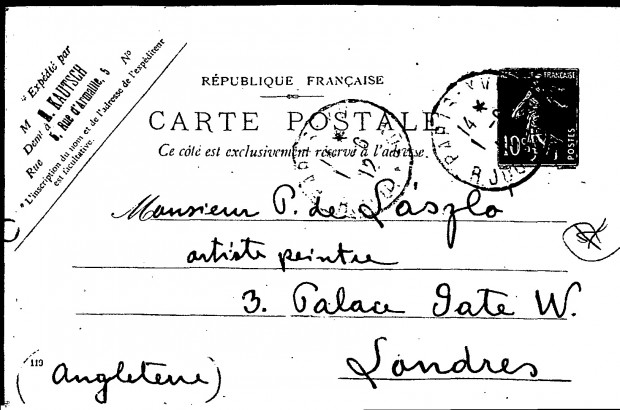 * Expédié par
M H. KAUTSCH
Demt à 5, Rue d'Armaillé, 5
Rue No
* L'inscription du nom et de l'adresse de l'expéditeur
est facultative.
RÉPUBLIQUE FRANÇAISE
CARTE POSTALE
Ce côté est exclusivement réservé à l'adresse.
10c
POSTES
Monsieur P. de László
artiste peintre
3. Palace Gate W.
Londres
(Angleterre)
119